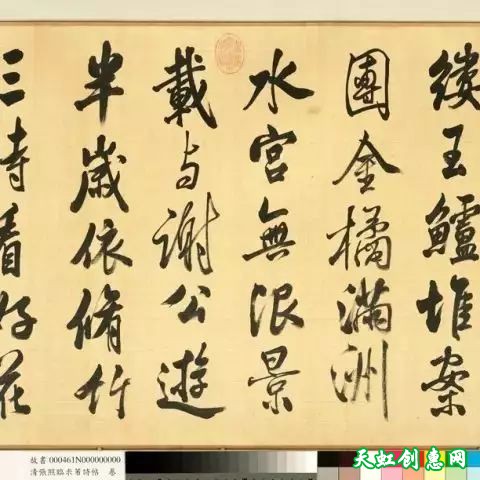 縷玉鱸堆案
團金橘滿洲
水宮無限景
載与謝公遊
半歲依脩竹
三時看好花
故書 000461N000000000
清張照臨米芾詩帖 卷
天虹创惠网